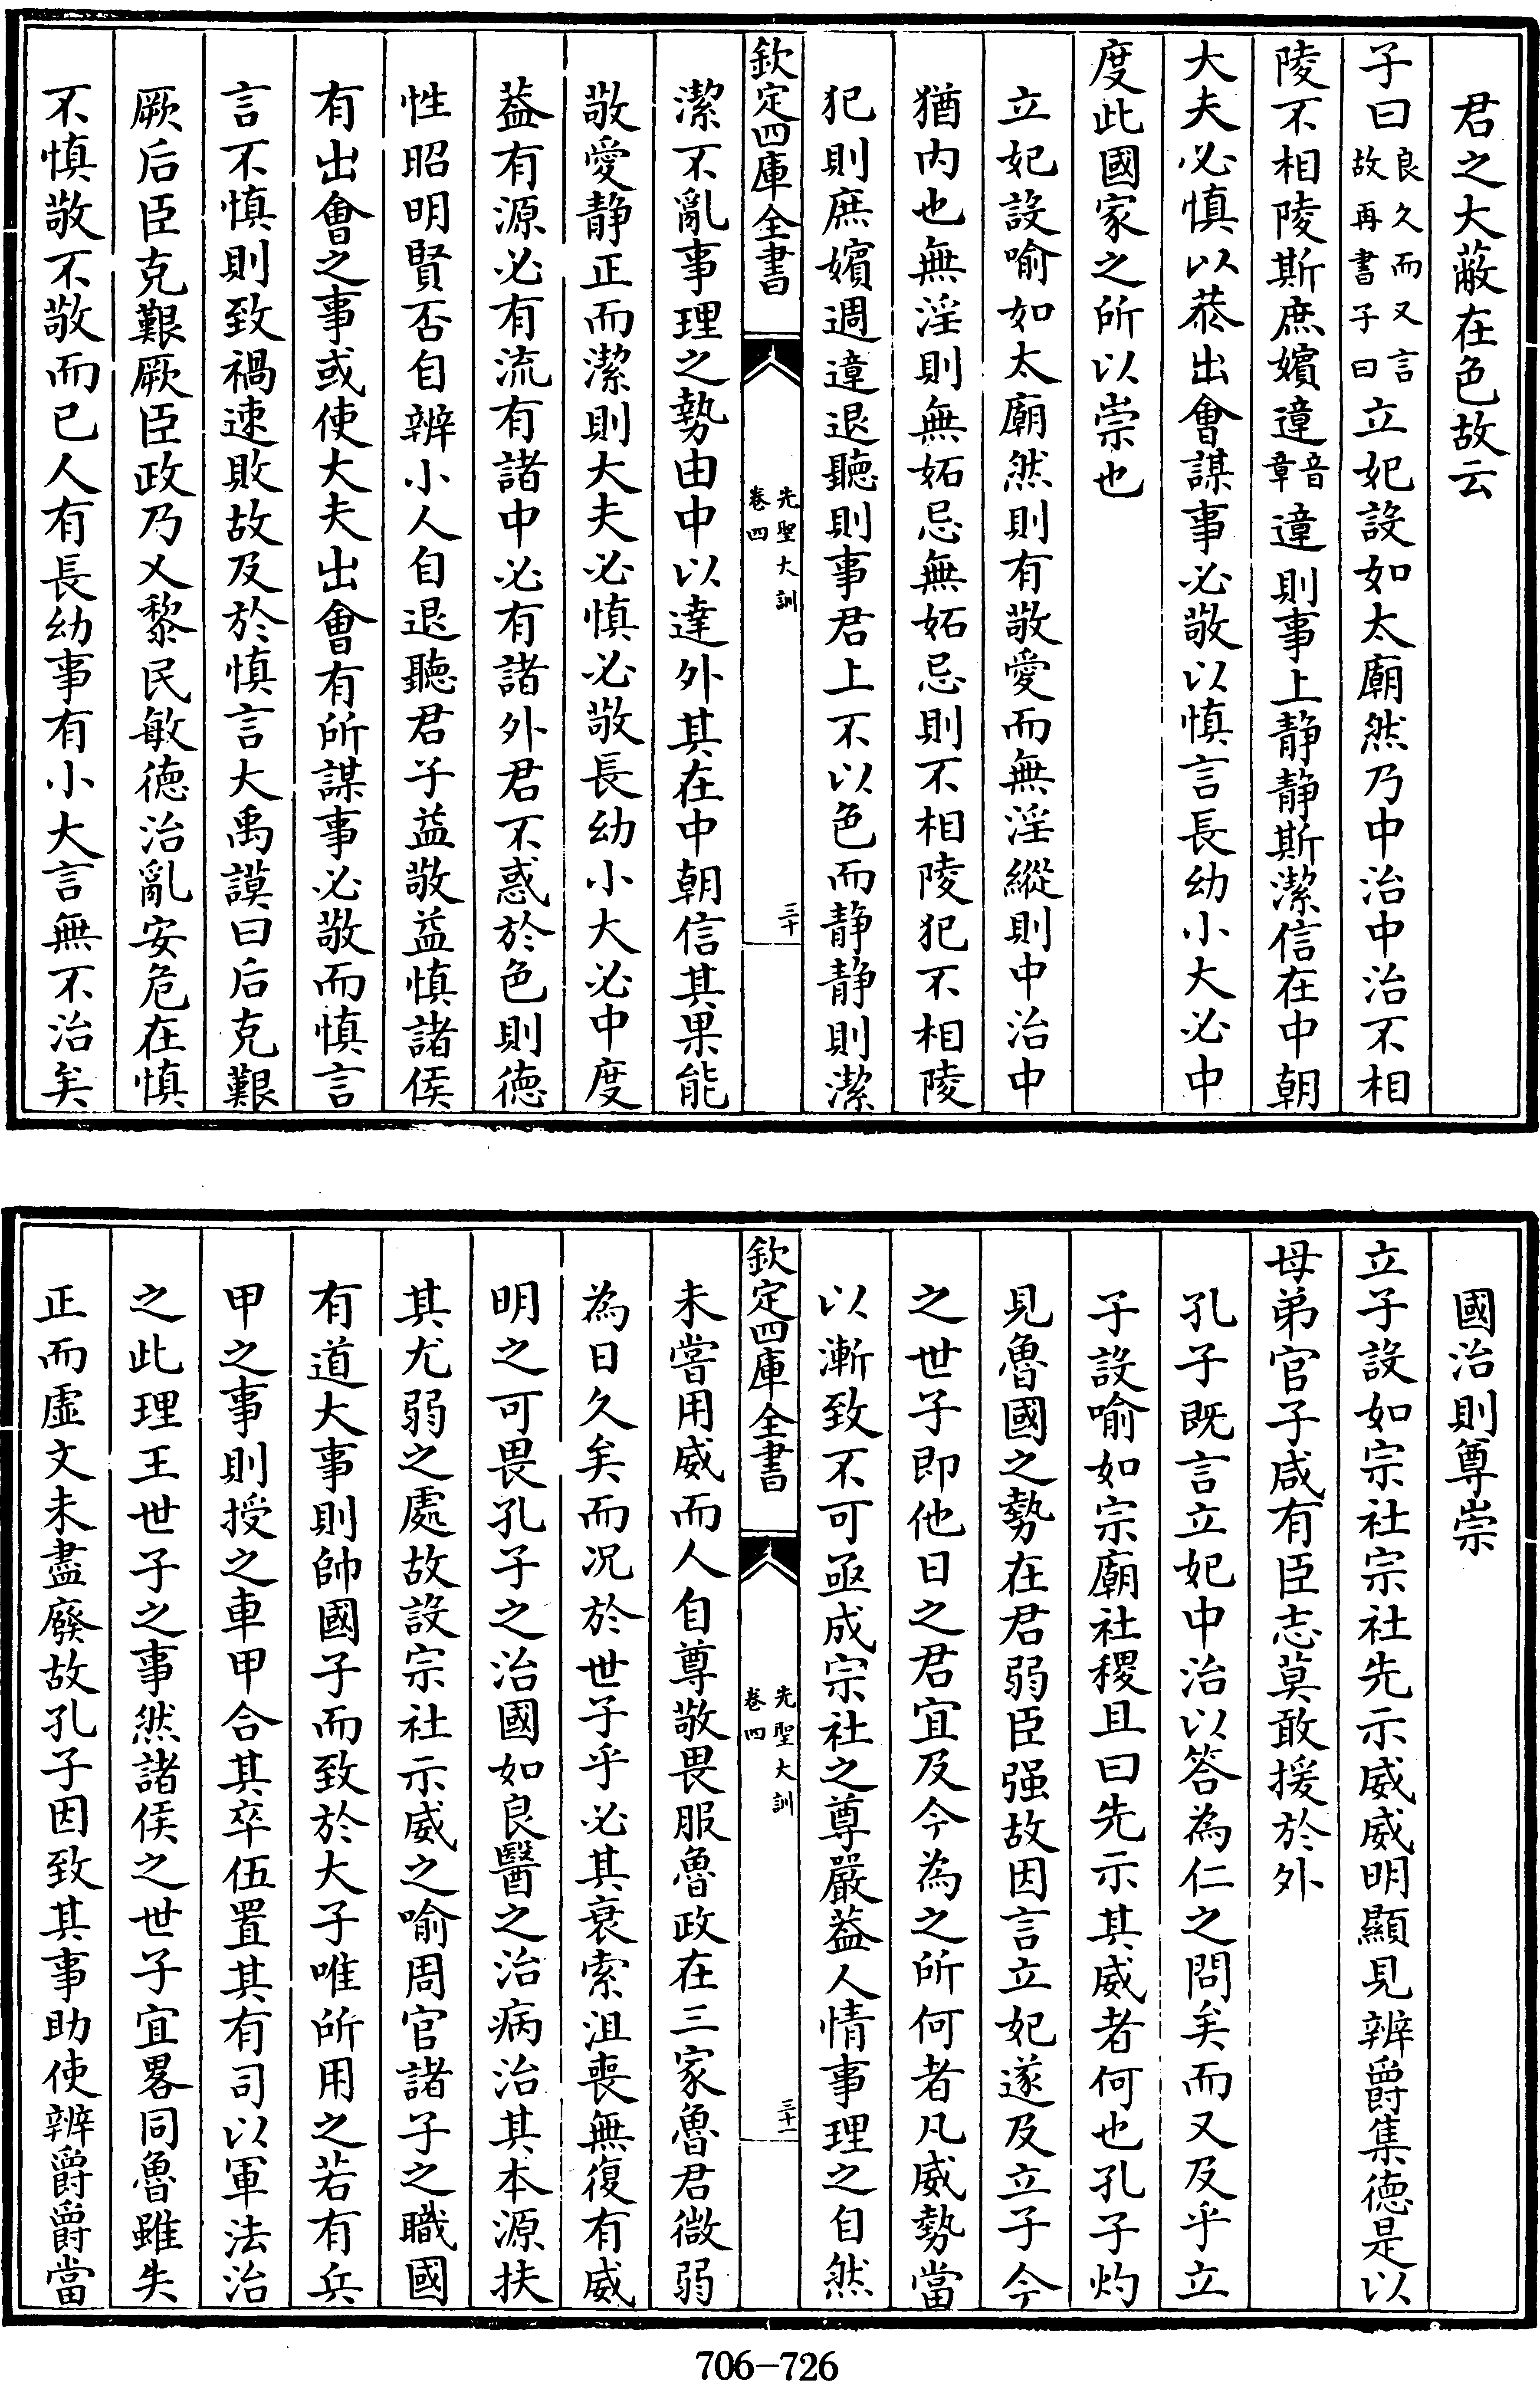 君之大蔽在色故云
子曰良久而又言故再書子曰立妃設如太廟然乃中治中治不相
陵不相陵斯庶嬪違音章違則事上静静斯潔信在中朝
大夫必慎以恭出會謀事必敬以慎言長幼小大必中
度此國家之所以崇也
立妃設喻如太廟然則有敬愛而無淫縱則中治中
猶内也無淫則無妬忌無妬忌則不相陵犯不相陵
犯則庶嬪週違退聽則事君上不以色而静静則潔
欽定四庫全書
先聖大訓
卷四
三十
潔不亂事理之勢由中以達外其在中朝信其果能
敬愛静正而潔則大夫必慎必敬長幼小大必中度
葢有源必有流有諸中必有諸外君不惑於色則徳
性昭明賢否自辨小人自退聽君子益敬益慎諸侯
有出會之事或使大夫出會有所謀事必敬而慎言
言不慎則致禍速敗故及於慎言大禹謨曰后克艱
厥后臣克艱厥臣政乃乂黎民敏徳治亂安危在慎
不慎敬不敬而已人有長幼事有小大言無不治矣
國治則尊崇
立子設如宗社宗社先示威威明顯見辨爵集徳是以
母弟官子咸有臣志莫敢援於外
孔子既言立妃中治以答為仁之問矣而又及乎立
子設喻如宗廟社稷且曰先示其威者何也孔子灼
見魯國之勢在君弱臣强故因言立妃遂及立子今
之世子即他日之君宜及今為之所何者凡威勢當
以漸致不可亟成宗社之尊嚴葢人情事理之自然
欽定四庫全書
先聖大訓
卷四
三十一
未嘗用威而人自尊敬畏服魯政在三家魯君微弱
為日久矣而况於世子乎必其衰索沮喪無復有威
明之可畏孔子之治國如良醫之治病治其本源扶
其尤弱之處故設宗社示威之喻周官諸子之職國
有道大事則帥國子而致於大子唯所用之若有兵
甲之事則授之車甲合其卒伍置其有司以軍法治
之此理王世子之事然諸侯之世子宜畧同魯雖失
正而虛文未盡廢故孔子因致其事助使辨爵爵當
706-726